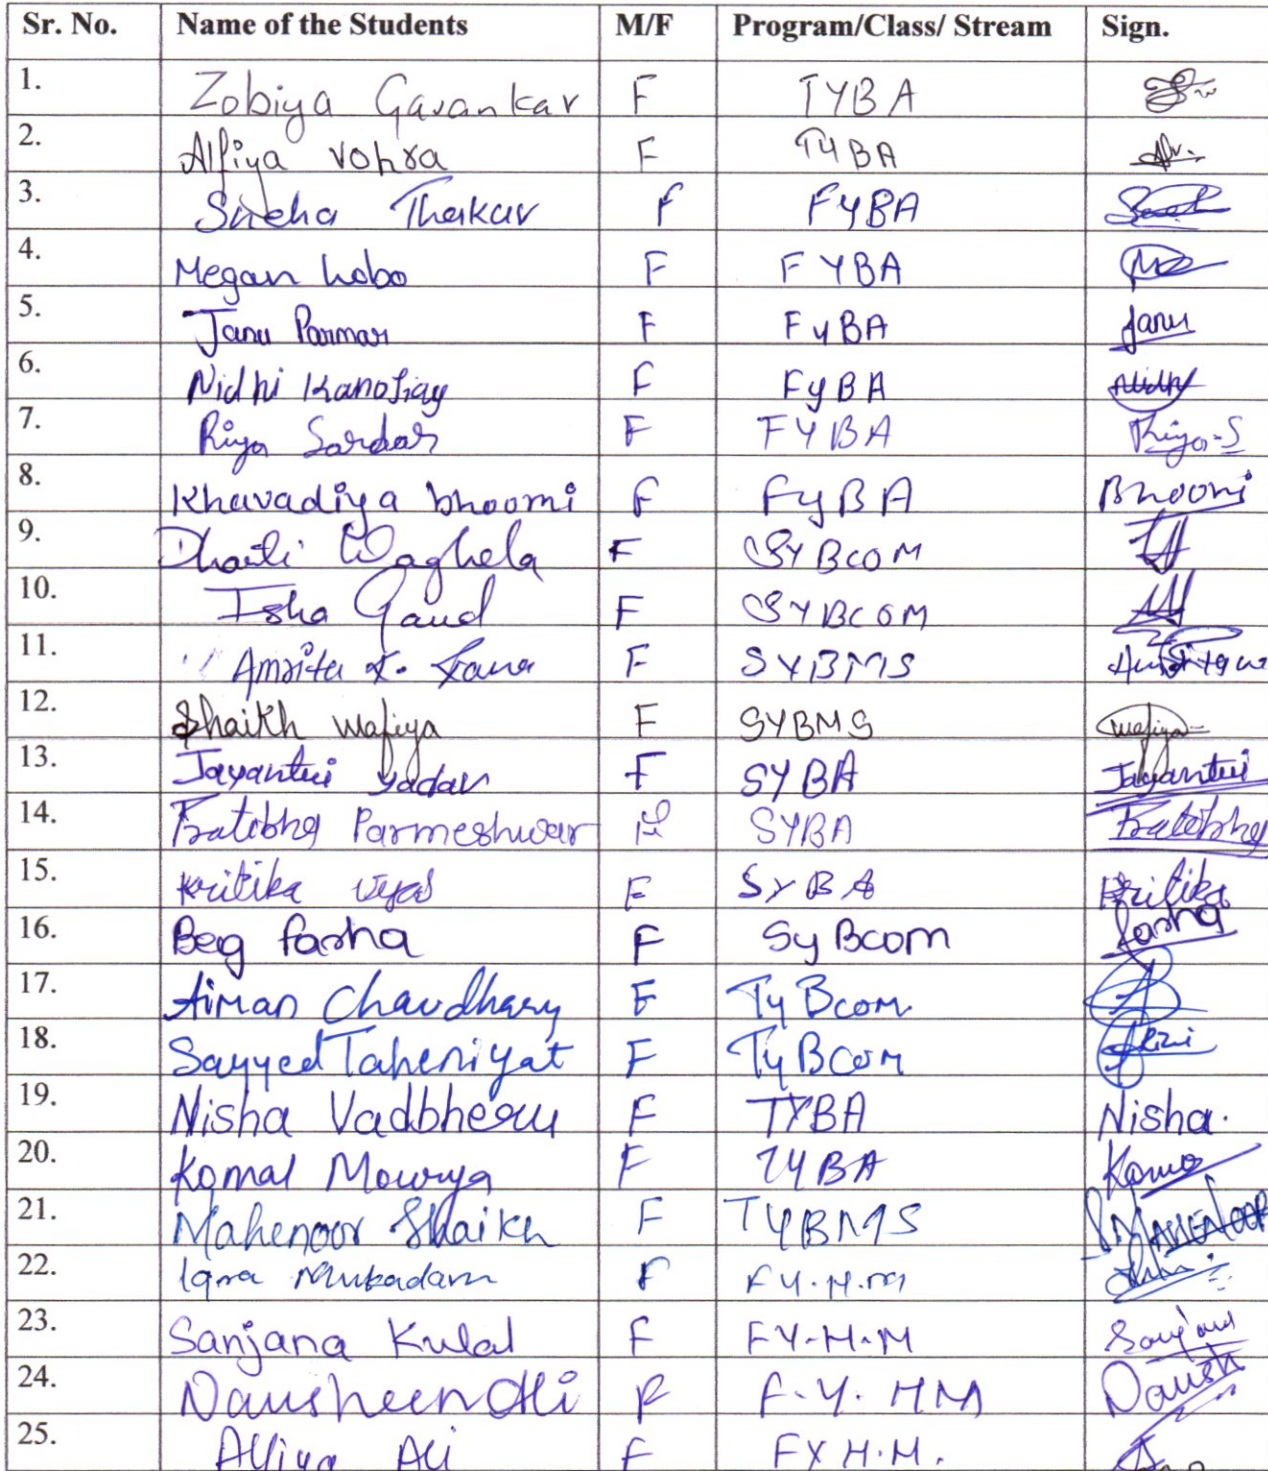 Sr. No. Name of the Students M/F Program/Class/ Stream Sign.
1. Zobiya Gavankar F TYBA
2. Alfiya Vohra F TYBA
3. Sneha Thakar F FYBA
4. Megan Lobo F FYBA
5. Janu Parmar F FyBA Janu
6. Nidhi Kanojiay F FyBA Nidhi
7. Riya Sardar F FYBA Riya-S
8. Khavadiya bhoomi F FyBA Bhoomi
9. Waghela F SYBCOM
10. Isha Gaud F SYBCOM
11. Amrita F SYBMS
12. Shaikh Wafiya F SYBMS Wafiya
13. Jayantui yadav F SYBA Jayantui
14. Parmeshwar F SYBA
15. Kritika Vyas F SYBA Kritika
16. Beg farha F SyBcom farha
17. Aiman Chaudhary F TyBcom.
18. Sayyed Taheniyat F TyBcom
19. Nisha F TYBA Nisha.
20. Komal Mourya F TYBA
21. Mahenoor Shaikh F TYBMS
22. Iqra Mukadam F F Y.H.M
23. Sanjana Kulal F FY-H-M
24. Nausheen Ali F F.Y. HM
25. Alfiya Ali F FY H.M.